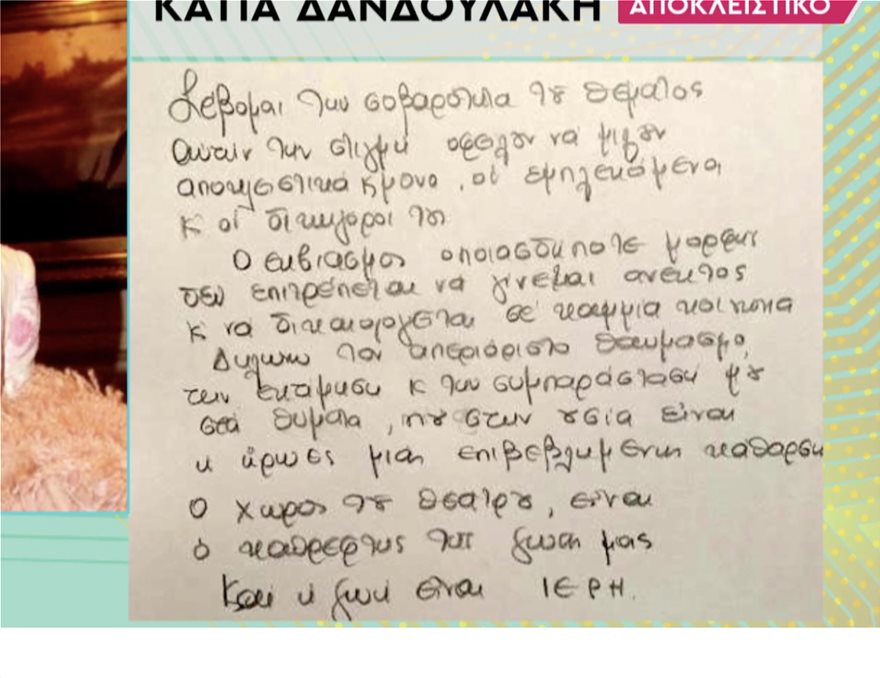 ΚΑΤΙΑ ΔΑΝΔΟΥΛΑΚΗ
ΑΠΟΚΛΕΙΣΤΙΚΟ
Σέβομαι την σοβαρότητα τȣ θέματος
Αυτήν την στιγμή οφείλȣν να μιλȣν
αποκλειστικά κ μονο, οι εμπλεκόμενοι
κ οι δικηγόροι τȣς
Ο εκβιασμος οποιασδήποτε μορφης
δεν επιτρέπεται να γίνεται ανεκτος
κ να δικαιολογείται σε καμμια κοινωνια
Δηλωνω τον απεριόριστο θαυμασμο,
την εκτίμηση κ την συμπαράσταση μȣ
στα θυματα, πȣ στην ȣσία είναι
κ ήρωες μιας επιβεβλημενης καθαρσης
Ο χωρος τȣ θεατρȣ, είναι
ο καθρεφτης της ζωης μας
Και η ζωή είναι ΙΕΡΗ.